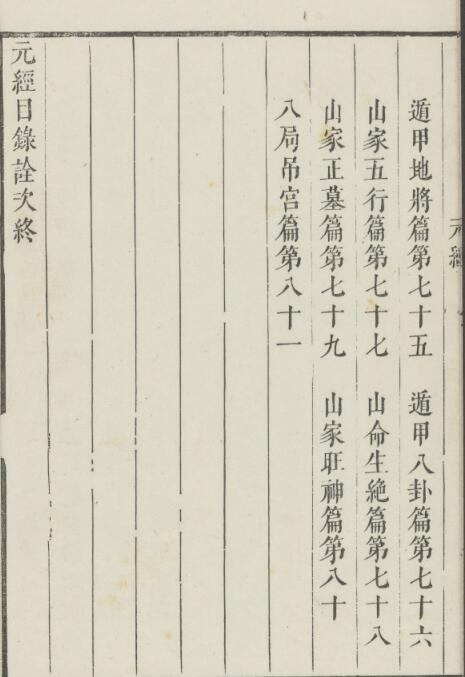 元經
遁甲地將篇第七十五　遁甲八卦篇第七十六
山家五行篇第七十七　山命生絶篇第七十八
山家正墓篇第七十九　山家旺神篇第八十
八局吊宮篇第八十一
元經目錄詮次終